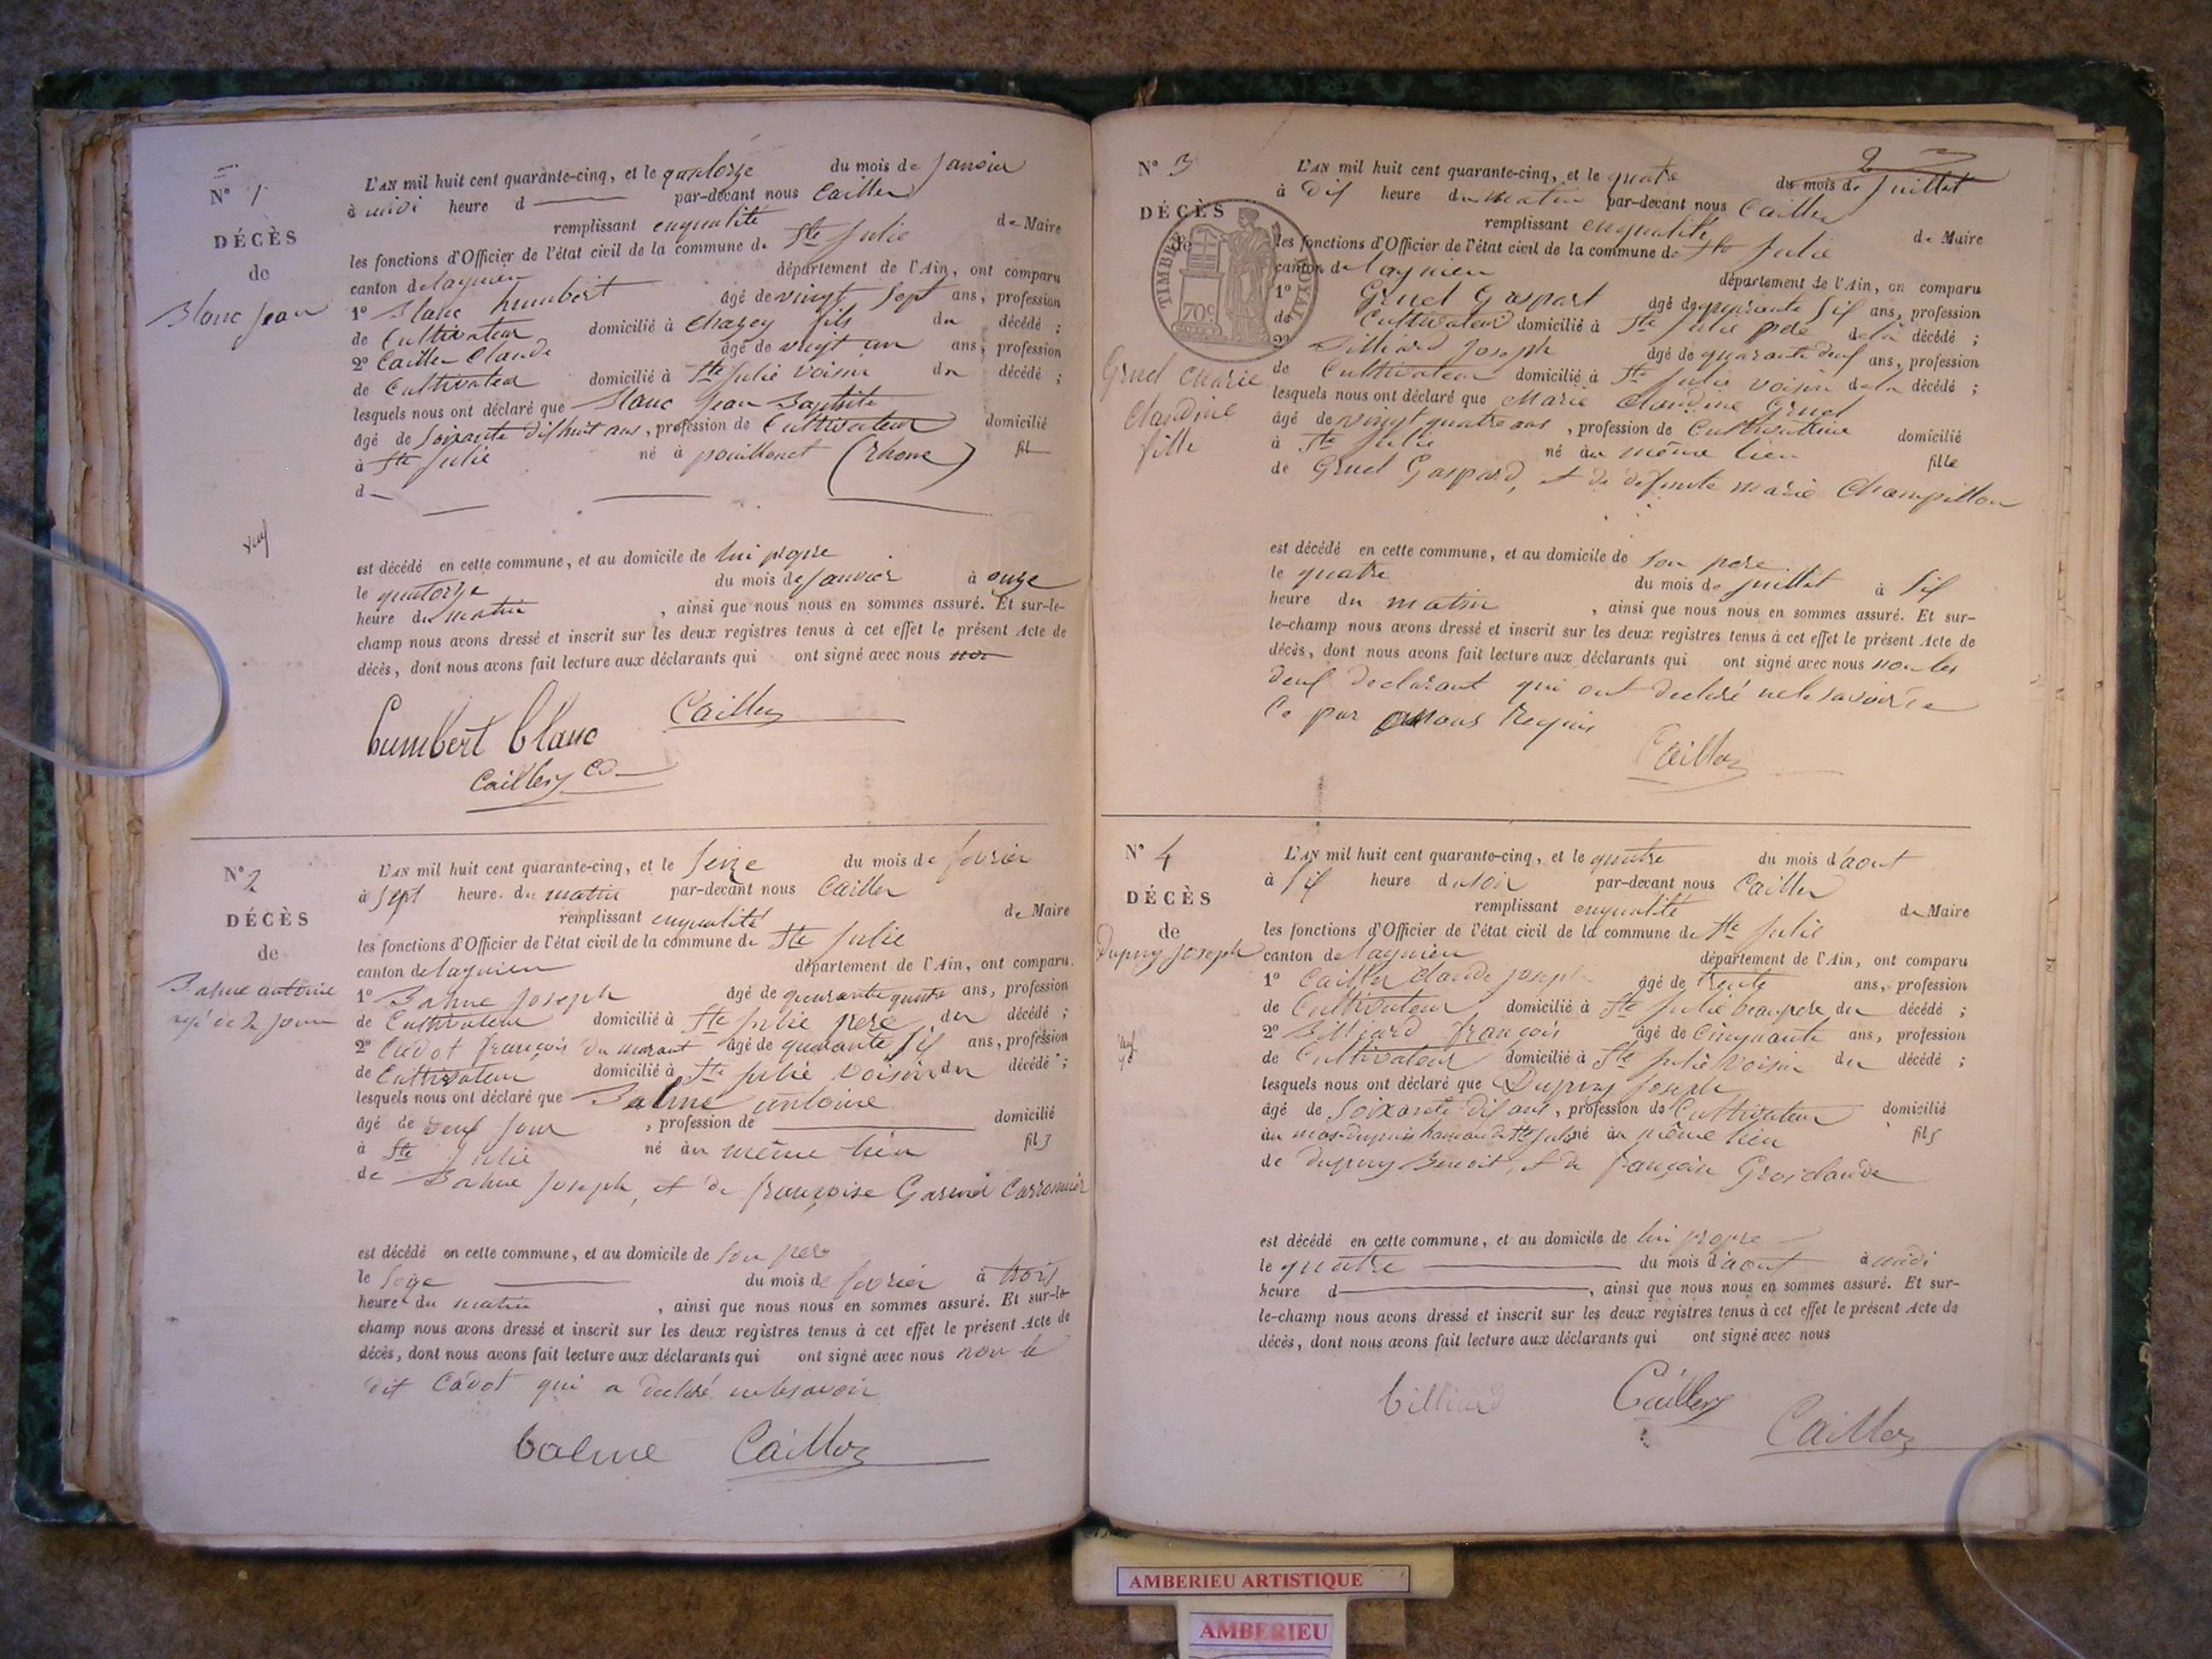 N° 1
DÉCÈS
de
Blanc Jean
L'AN mil huit cent quarante-cinq, et le quatorze du mois de Janvier
à midi heure d par-devant nous Cailler
remplissant enqualité de Maire
les fonctions d'Officier de l'état civil de la commune de Ste Julie
canton de lagnieu département de l'Ain, ont comparu
1° Blanc humbert âgé de vingt sept ans, profession
de Cultivateur domicilié à Chazey fils du décédé ;
2° Cailler Claude âgé de vingt un ans, profession
de Cultivateur domicilié à Ste Julie voisin du décédé ;
lesquels nous ont déclaré que Blanc Jean Baptiste
âgé de Soixante dixhuit ans, profession de Cultivateur domicilié
à Ste Julie né à pouillonet (Rhone) fil
d
est décédé en cette commune, et au domicile de lui propre
le quatorze du mois de Janvier à onze
heure du matin, ainsi que nous nous en sommes assuré. Et sur-le-
champ nous avons dressé et inscrit sur les deux registres tenus à cet effet le présent Acte de
décès, dont nous avons fait lecture aux déclarants qui ont signé avec nous
humbert blanc Cailler
Cailler Cd
N° 2
DÉCÈS
de
Balme antoine
agé de 2 jour
L'AN mil huit cent quarante-cinq, et le Seize du mois de fevrier
à Sept heure du matin par-devant nous Cailler
remplissant enqualité de Maire
les fonctions d'Officier de l'état civil de la commune de Ste Julie
canton de lagnieu département de l'Ain, ont comparu
1° Balme Joseph âgé de quarante quatre ans, profession
de Cultivateur domicilié à Ste Julie pere du décédé ;
2° Cadot françois du marant âgé de quarante six ans, profession
de Cultivateur domicilié à Ste Julie voisin du décédé ;
lesquels nous ont déclaré que Balme antoine
âgé de deux jour, profession de domicilié
à Ste Julie né au même lieu fils
de Balme Joseph, et de françoise Carronnier
est décédé en cette commune, et au domicile de son pere
le Seize du mois de fevrier à trois
heure du matin, ainsi que nous nous en sommes assuré. Et sur-le-
champ nous avons dressé et inscrit sur les deux registres tenus à cet effet le présent Acte de
décès, dont nous avons fait lecture aux déclarants qui ont signé avec nous non le
dit Cadot qui a declaré nelesavoir
balme Cailler
2
N° 3
DÉCÈS
de
TIMBRE ROYAL
70c
Gruel Marie
Claudine
fille
L'AN mil huit cent quarante-cinq, et le quatre du mois de Juillet
à dix heure du matin par-devant nous Cailler
remplissant enqualité de Maire
les fonctions d'Officier de l'état civil de la commune de Ste Julie
canton de lagnieu département de l'Ain, on comparu
1° Gruel Gaspart âgé de quarante six ans, profession
de Cultivateur domicilié à Ste Julie pere dela décédé ;
2° Billiard Joseph âgé de quarante deux ans, profession
de Cultivateur domicilié à Ste Julie voisin dela décédé ;
lesquels nous ont déclaré que Marie Claudine Gruel
âgé de vingt quatre ans, profession de Cultivatrice domicilié
à Ste Julie né au même lieu fille
de Gruel Gaspard, et de defunte marie Champillon
est décédé en cette commune, et au domicile de son pere
le quatre du mois de juillet à six
heure du matin, ainsi que nous nous en sommes assuré. Et sur-
le-champ nous avons dressé et inscrit sur les deux registres tenus à cet effet le présent Acte de
décès, dont nous avons fait lecture aux déclarants qui ont signé avec nous non les
deux declarant qui ont declaré nele savoir de
Ce par nous Requis
Cailler
N° 4
DÉCÈS
de
Dupuy Joseph
L'AN mil huit cent quarante-cinq, et le quatre du mois d'aout
à six heure du soir par-devant nous Cailler
remplissant enqualité de Maire
les fonctions d'Officier de l'état civil de la commune de Ste Julie
canton de lagnieu département de l'Ain, ont comparu
1° Cailler Claude joseph âgé de trente ans, profession
de Cultivateur domicilié à Ste Julie beaupere du décédé ;
2° Billiard françois âgé de Cinquante ans, profession
de Cultivateur domicilié à Ste Julie Voisin du décédé ;
lesquels nous ont déclaré que Dupuy Joseph
âgé de Soixante dix ans, profession de Cultivateur domicilié
au mas dupuis hameau de Ste Julie né au même lieu fils
de Dupuy Benoit, et de françoise Grosclaude
est décédé en cette commune, et au domicile de lui propre
le quatre du mois d'aout à midi
heure d, ainsi que nous nous en sommes assuré. Et sur-
le-champ nous avons dressé et inscrit sur les deux registres tenus à cet effet le présent Acte de
décès, dont nous avons fait lecture aux déclarants qui ont signé avec nous
billiard Cailler
Cailler
AMBERIEU ARTISTIQUE
AMBERIEU